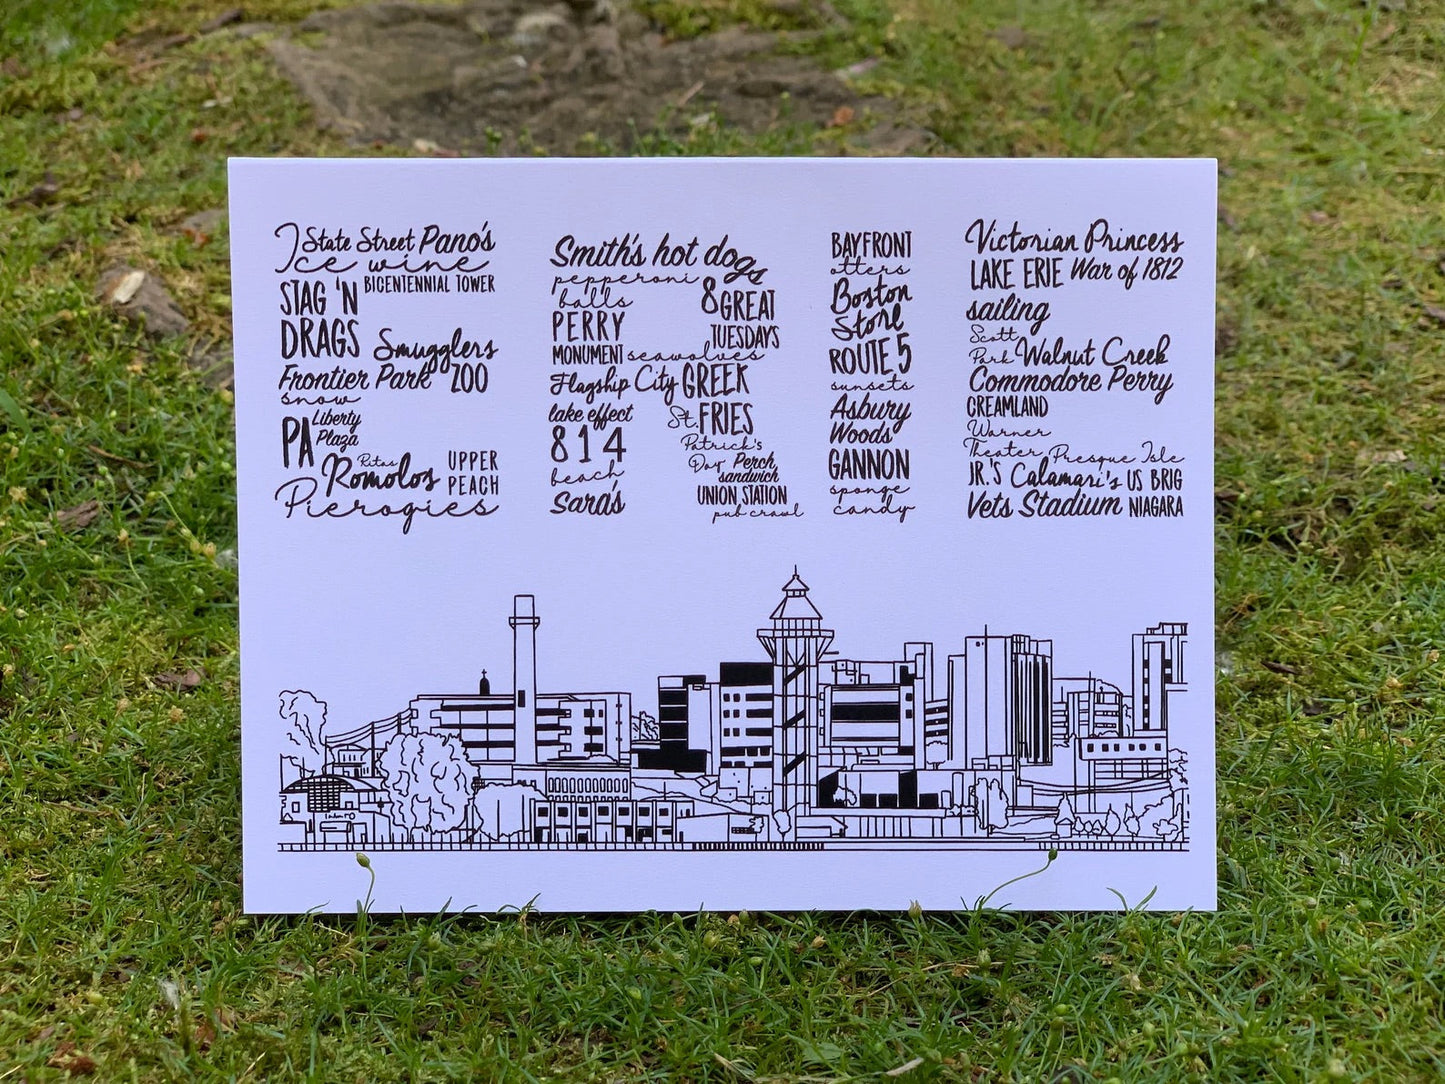 State Street Pano's
Ice wine
BICENTENNIAL TOWER
STAG 'N
DRAGS
Smugglers
Frontier Park ZOO
snow
PA Liberty
Plaza
Ritas
Romolos UPPER
PEACH
Pierogies
Smith's hot dogs
pepperoni
balls
8 GREAT
TUESDAYS
PERRY
MONUMENT seawolves
Flagship City GREEK
lake effect
St. FRIES
814
Patrick's
Day Perch
sandwich
beach
UNION STATION
Sara's
pub crawl
BAYFRONT
otters
Boston
Store
ROUTE 5
sunsets
Asbury
Woods
GANNON
sponge
candy
Victorian Princess
LAKE ERIE War of 1812
sailing
Scott
Park Walnut Creek
Commodore Perry
CREAMLAND
Warner
Theater Presque Isle
JR.'S Calamari's US BRIG
Vets Stadium NIAGARA